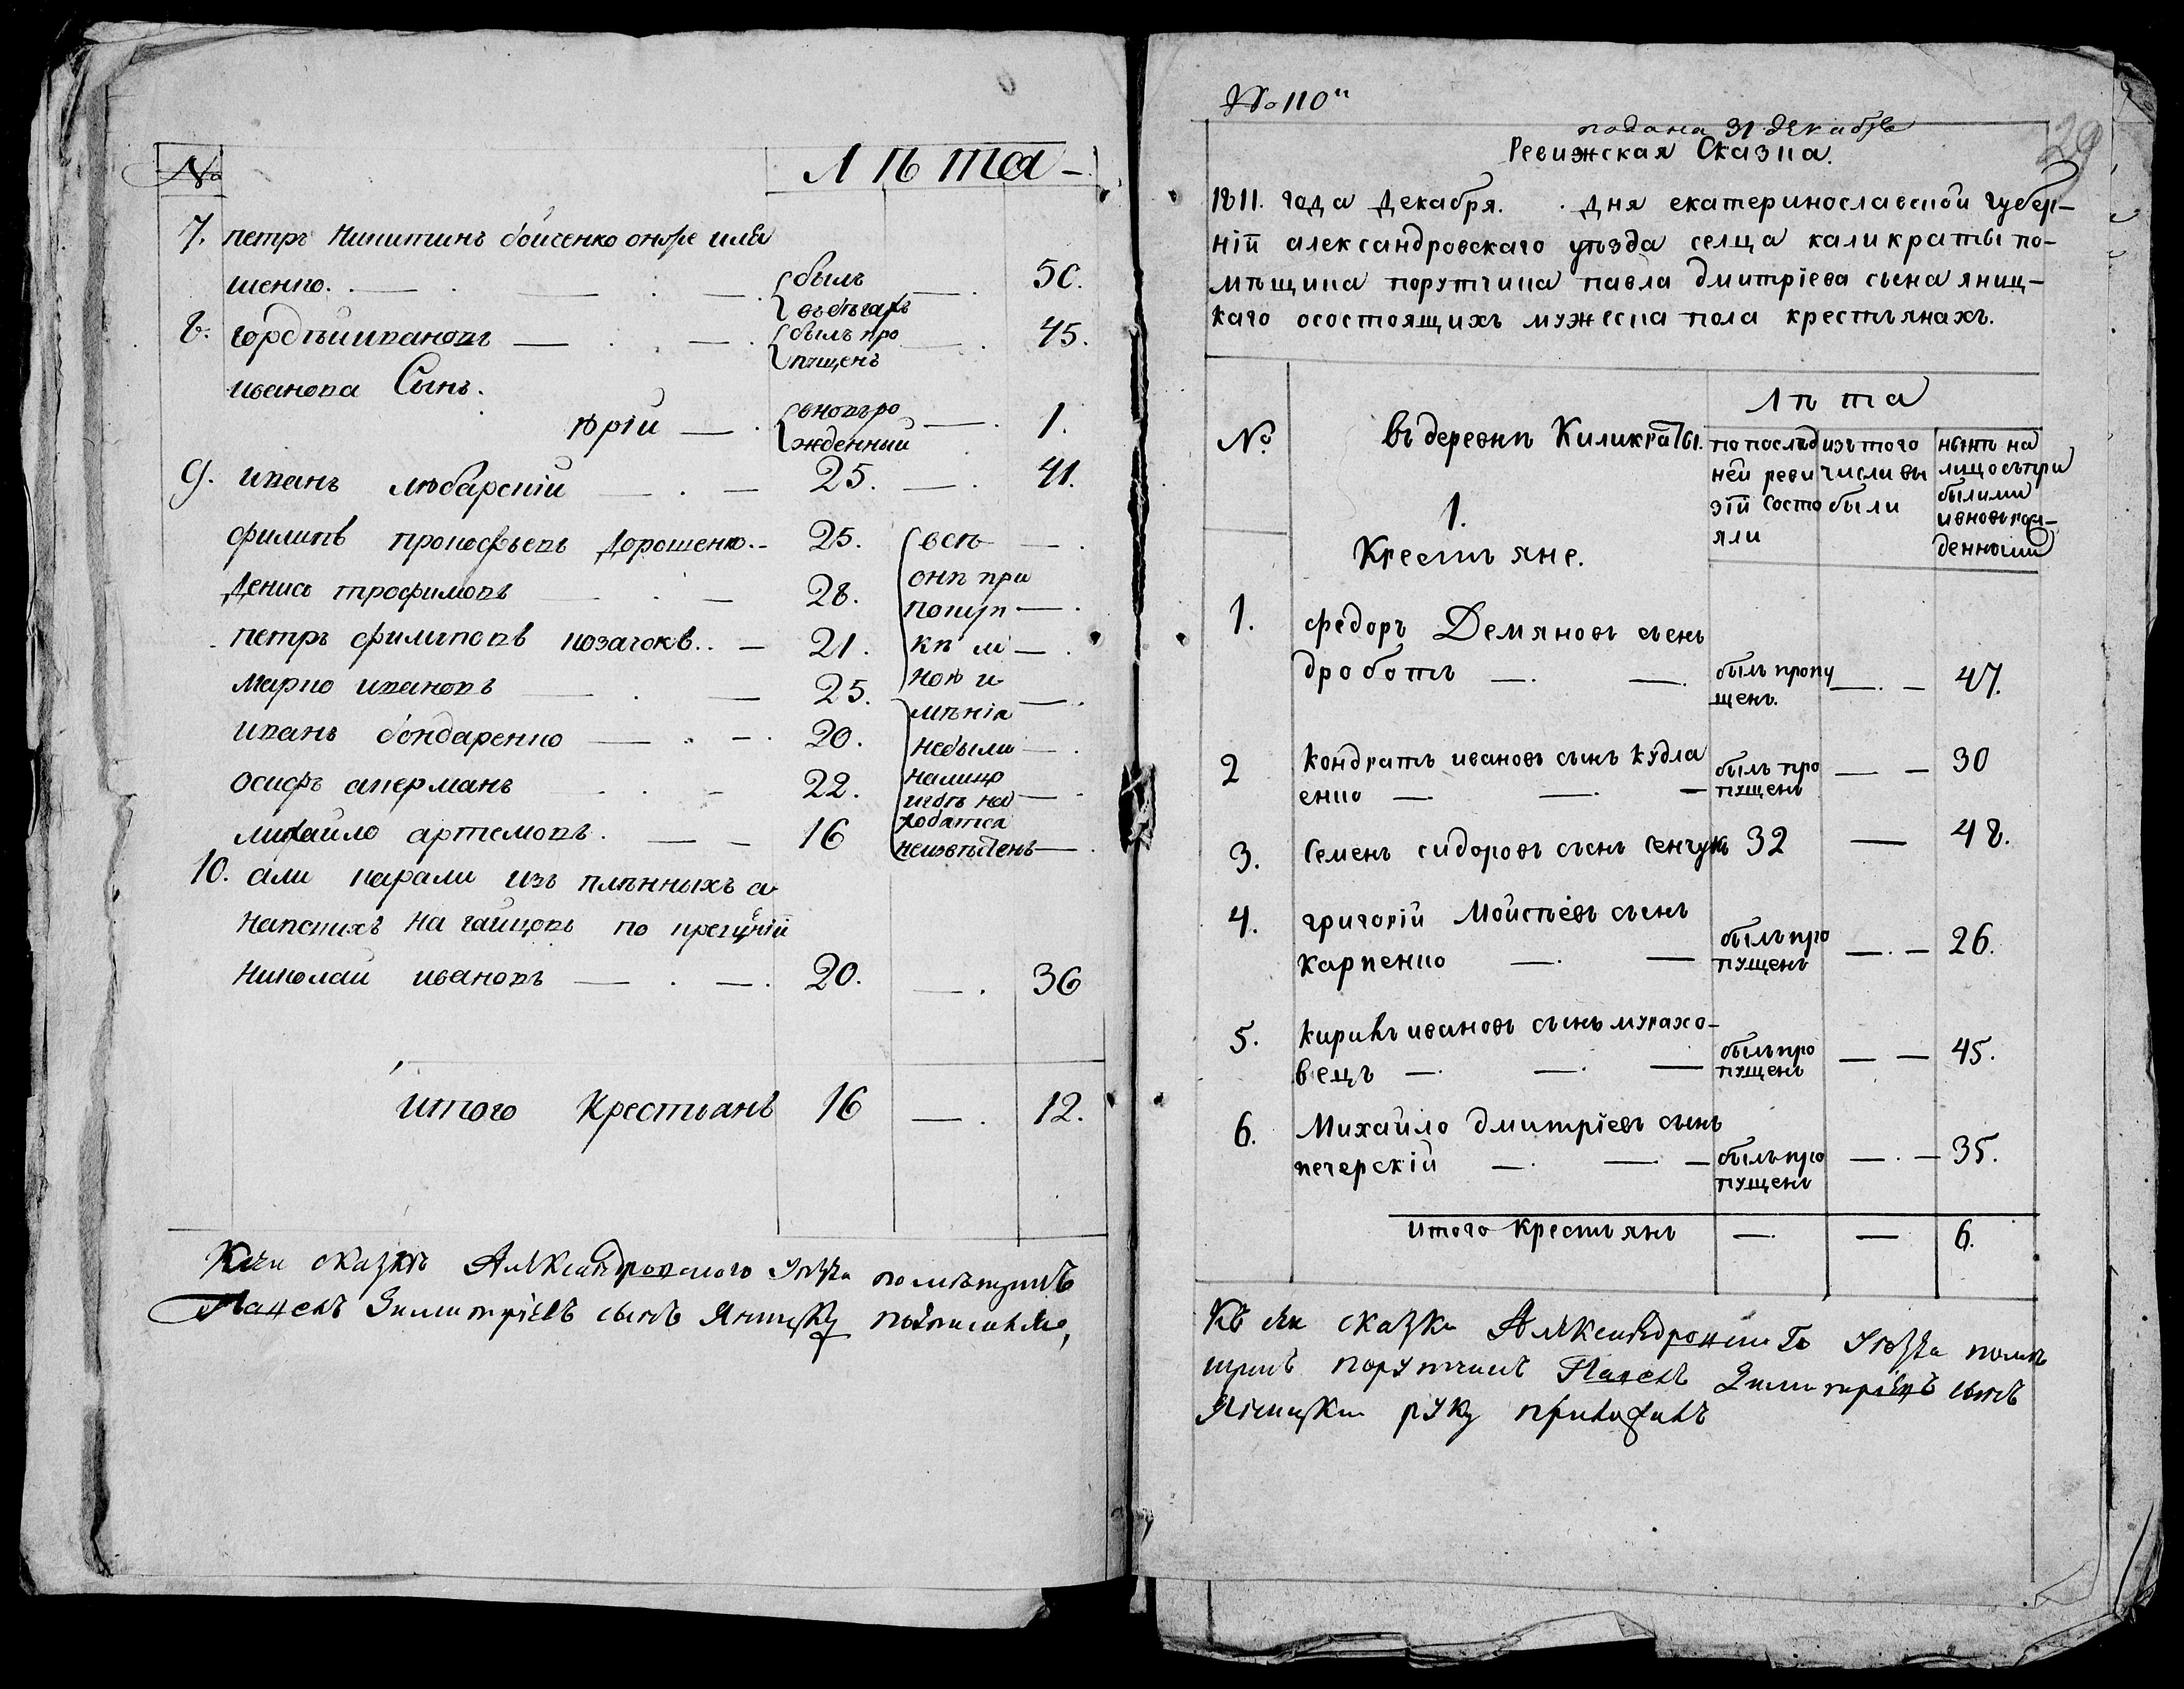 №
Лѣта
7. петръ Никитинъ бойсенко онже илья
шенко. 50.
былъ
въбѣгахъ
8. гордѣй ивановъ 45.
былъ про
пущенъ
иванова Сынъ.
юрій 1.
вновьро
жденный
9. иванъ любарскій 25. 41.
филипъ прокофьевъ дорошенко. 25.
Денисъ трофимовъ 28.
петръ филиповъ козачокъ. 21.
марко ивановъ 25.
иванъ бондаренко 20.
осифъ акерманъ 22.
михайло артемовъ. 16
всѣ
онѣ при
покуп
кѣ м
ною и
мѣнія
небыли
налицо
игдѣ на
ходатса
неизвѣстенъ
10. али карали изъ плѣнныхъ а
напскихъ нагайцовъ по крещеніи
Николай ивановъ 20. 36
итого Крестьянъ 16 12.
сказкѣ Александровского уѣзда помѣщикъ
Павелъ Димитріевъ сынъ Яницкий
№ 110й
подана 31 декабря
29
Ревижская Сказка.
1811. года декабря. дня екатеринославской губер-
ніи александровскаго уѣзда селца каликраты по-
мѣщика порутчика павла дмитріева сына яниц-
каго осостоящихъ мужеска пола крестьянахъ.
№
Въ деревнѣ Киликраты.
1.
Крестьяне.
Лѣта
по послѣд
ней реви
зіи состо
яли
изъ того
числи вы
были
нынѣ на
лицо съпри
былими
ивновьрож
денными
1. федоръ Демяновъ сынъ
дроботъ 47.
былъ пропу
щенъ.
2 Кондратъ ивановъ сынъ кудла
енко 30
былъ про
пущенъ
3. Семенъ сидоровъ сынъ сенчукъ 32 48.
4. григорій Мойсѣевъ сынъ
Карпенко 26.
былъ про
пущенъ
5. Кирилъ ивановъ сынъ мухахо-
вецъ 45.
былъ про
пущенъ
6. Михайло дмитріевъ сынъ
печерскій 35.
былъ про
пущенъ
итого крестьянъ 6.
Къ сей сказки Александровскаго уѣзда помѣ
щикъ порутчикъ Павелъ Димитріевъ сынъ
Яницкий руку приложилъ